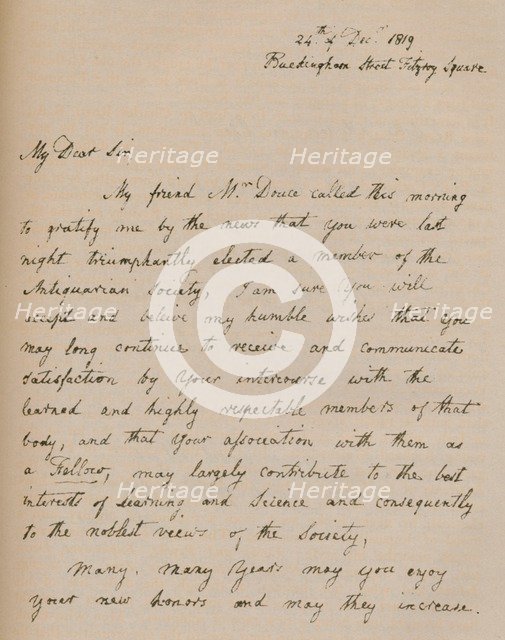 24th of Decr 1819
Buckingham Street Fitzroy Square.
My Dear Sir,
My friend Mr Douce called this morning
to gratify me by the news that you were last
night triumphantly elected a member of the
Antiquarian Society, I am sure you will
accept and believe my humble wishes that you
may long continue to receive and communicate
satisfaction by your intercourse with the
learned and highly respectable members of that
body, and that your association with them as
a Fellow, may largely contribute to the best
interests of learning and Science and consequently
to the noblest veiws of the Society,
Many, many years may you enjoy
your new honors and may they increase.
Heritage Heritage
Heritage Heritage
Heritage Heritage
C